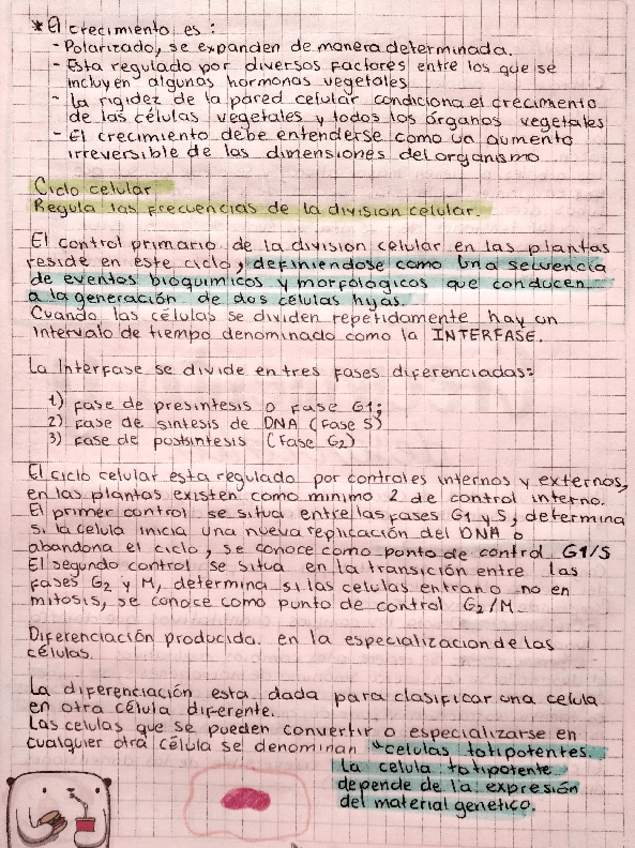 * El crecimiento es :
- Polarizado, se expanden de manera determinada.
- Esta regulado por diversos factores entre los que se
incluyen algunas hormonas vegetales
- La rigidez de la pared celular condiciona el crecimento
de las células vegetales y todos los órganos vegetales
- El crecimiento debe entenderse como un aumento
irreversible de las dimensiones del organismo
Ciclo celular
Regula las frecuencias de la division celular.
El control primario de la division celular en las plantas
reside en este ciclo, definiendose como una secuencia
de eventos bioquimicos y morfologicos que conducen
a la generación de dos células hijas.
Cuando las células se dividen repetidamente hay un
intervalo de tiempo denominado como la INTERFASE.
La Interfase se divide en tres fases diferenciadas:
1) fase de presintesis o fase G1;
2) fase de sintesis de DNA (fase S)
3) fase de postsintesis (fase G2)
El ciclo celular esta regulado por controles internos y externos,
en las plantas existen como minimo 2 de control interno.
El primer control se situa entre las fases G1 y S, determina
si la celula inicia una nueva replicación del DNA o
abandona el ciclo, se conoce como punto de control G1/S
El segundo control se situa en la transición entre las
fases G2 y M, determina si las celulas entran o no en
mitosis, se conoce como punto de control G2/M.
Diferenciación producida. en la especializacion de las
células.
La diferenciación esta dada para clasificar una celula
en otra célula diferente.
Las celulas que se pueden convertir o especializarse en
cualquier otra célula se denominan *celulas totipotentes.
La celula totipotente
depende de la expresión
del material genetico.